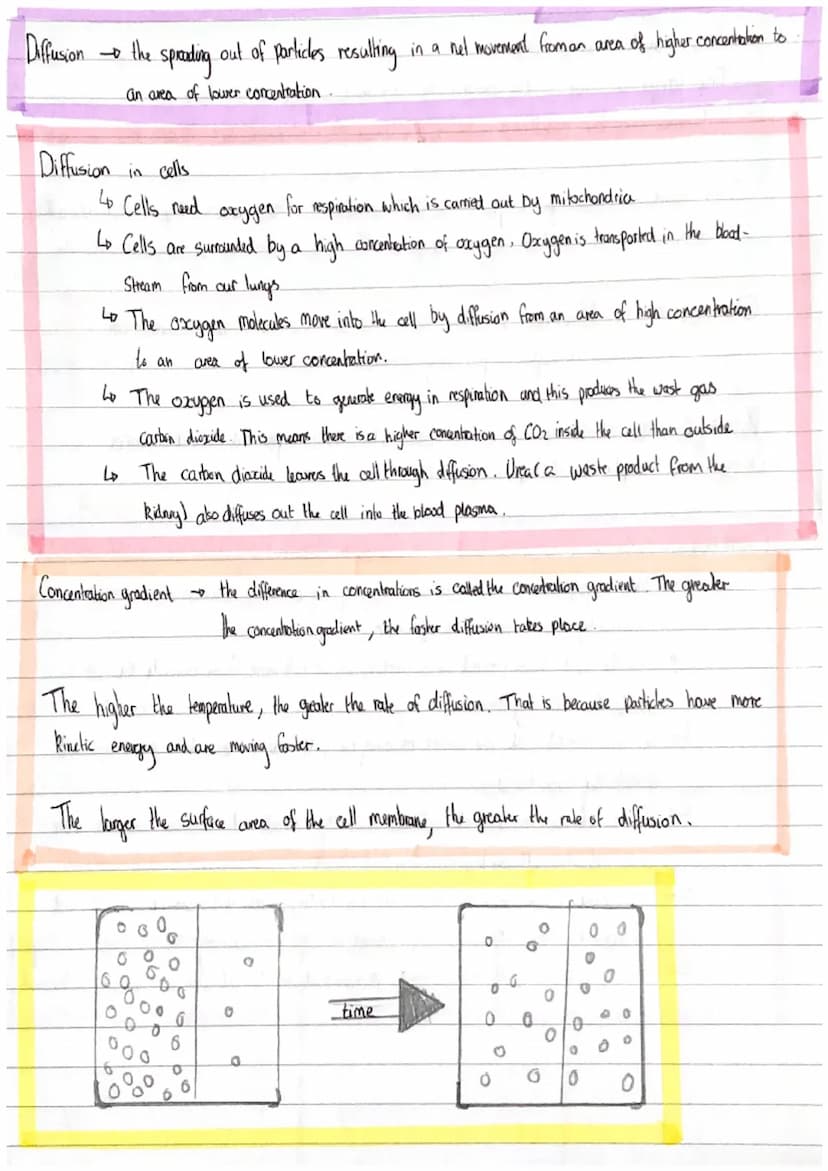 Diffusion → the spreading out of particles resulting in a net movement from an area of higher concentration to
an area of lower concentration.
Diffusion in cells
↳ Cells need oxygen for respiration which is carried out by mitochondria
↳ Cells are surrounded by a high concentration of oxygen. Oxygen is transported in the blood-
stream from our lungs
↳ The oxygen molecules move into the cell by diffusion from an area of high concentration
to an area of lower concentration.
↳ The oxygen is used to generate energy in respiration and this produces the wast gas
carbon dioxide. This means there is a higher concentration of CO2 inside the cell than outside
↳ The carbon dioxide leaves the cell through diffusion. Urea (a waste product from the
kidney) also diffuses out the cell into the blood plasma.
Concentration gradient → the difference in concentrations is called the concentration gradient. The greater
the concentration gradient, the faster diffusion takes place.
The higher the temperature, the greater the rate of diffusion. That is because particles have more
kinetic energy and are moving faster.
The larger the surface area of the cell membrane, the greater the rate of diffusion.
time